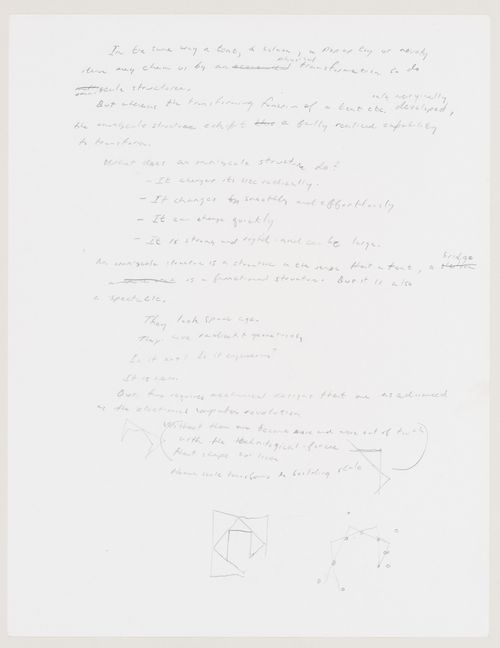 In the same way a tent, a a paper toy or novely
item may charm us by an physical transformation so do
structures.
But whereas the transforming function of a tent etc. only marginally developed,
the structure exhibit a fully realized capability
to transform.
What does an structure do?
- It changes its size radically.
- It changes smoothly and effortlessly
- It can change quickly
- It is strong and rigid and can be large.
An structure is a structure in the sense that a tent, a bridge
is a functional structure. But it is also
a spectacle.
They look space age.
They are radiant geometries
Is it art? Is it engineering?
It is new.
Our time requires mechanical designs that are as advanced
as the electronic computer revolution
Without them we become more and more out of touch
with the technological forces
that shape our lives
Human scale transforms to building scale